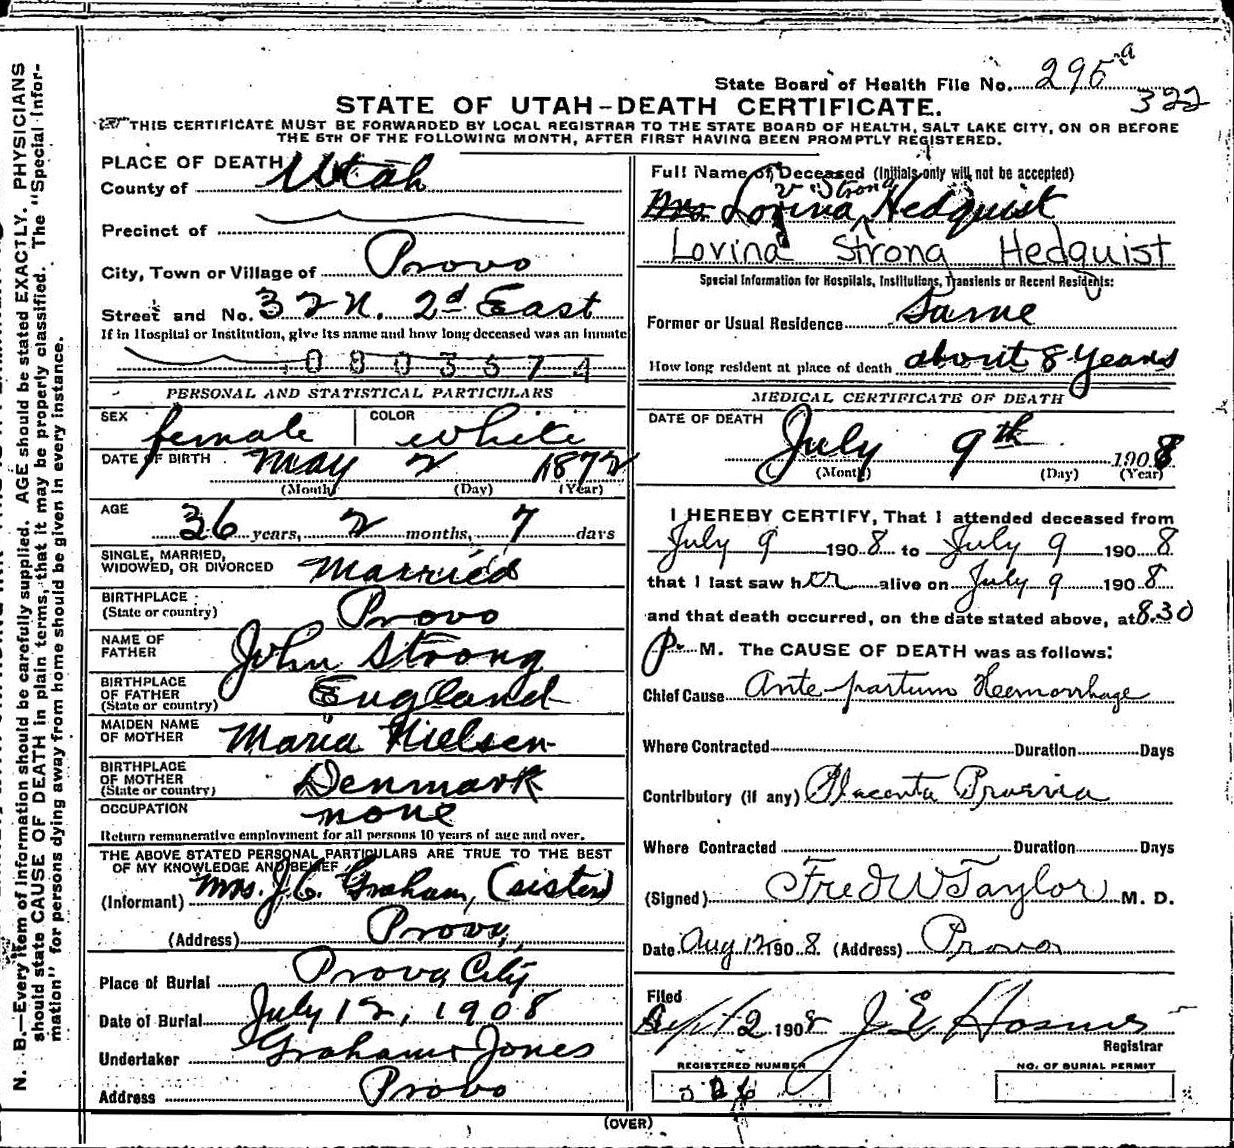 State Board of Health File No. 295 a
322
STATE OF UTAH-DEATH CERTIFICATE.
THIS CERTIFICATE MUST BE FORWARDED BY LOCAL REGISTRAR TO THE STATE BOARD OF HEALTH, SALT LAKE CITY, ON OR BEFORE
THE 5TH OF THE FOLLOWING MONTH, AFTER FIRST HAVING BEEN PROMPTLY REGISTERED.
PLACE OF DEATH
County of Utah
Precinct of
City, Town or Village of Provo
Street and No. 32 N. 2d East
If in Hospital or Institution, give its name and how long deceased was an inmate
0803574
PERSONAL AND STATISTICAL PARTICULARS
SEX female COLOR white
DATE OF BIRTH May 2 1872
(Month) (Day) (Year)
AGE
36 years, 2 months, 7 days
SINGLE, MARRIED,
WIDOWED, OR DIVORCED Married
BIRTHPLACE
(State or country) Provo
NAME OF
FATHER John Strong
BIRTHPLACE
OF FATHER
(State or country) England
MAIDEN NAME
OF MOTHER Maria Nielsen
BIRTHPLACE
OF MOTHER
(State or country) Denmark
OCCUPATION none
Return remunerative employment for all persons 10 years of age and over.
THE ABOVE STATED PERSONAL PARTICULARS ARE TRUE TO THE BEST
OF MY KNOWLEDGE AND BELIEF
(Informant) Mrs. J. C. Graham, (sister)
(Address) Provo,
Place of Burial Provo City
Date of Burial July 12, 1908
Undertaker Graham & Jones
Address Provo
Full Name of Deceased (Initials only will not be accepted)
v Strong
Mrs Lovina Hedquist
Lovina Strong Hedquist
Special Information for Hospitals, Institutions, Transients or Recent Residents:
Former or Usual Residence Same
How long resident at place of death about 8 years
MEDICAL CERTIFICATE OF DEATH
DATE OF DEATH
July 9th 1908
(Month) (Day) (Year)
I HEREBY CERTIFY, That I attended deceased from
July 9 1908 to July 9 1908
that I last saw her alive on July 9 1908
and that death occurred, on the date stated above, at 8.30
P. M. The CAUSE OF DEATH was as follows:
Chief Cause Ante-partum Heemorrhage
Where Contracted Duration Days
Contributory (if any) Placenta Praevia
Where Contracted Duration Days
(Signed) Fred W Taylor M. D.
Date Aug 12 1908. (Address) Provo
Filed
Sept 2 1908 J E Hosmer
Registrar
REGISTERED NUMBER NO. OF BURIAL PERMIT
(OVER)
N. B.—Every item of information should be carefully supplied. AGE should be stated EXACTLY. PHYSICIANS
should state CAUSE OF DEATH in plain terms, that it may be properly classified. The "Special Infor-
mation" for persons dying away from home should be given in every instance.